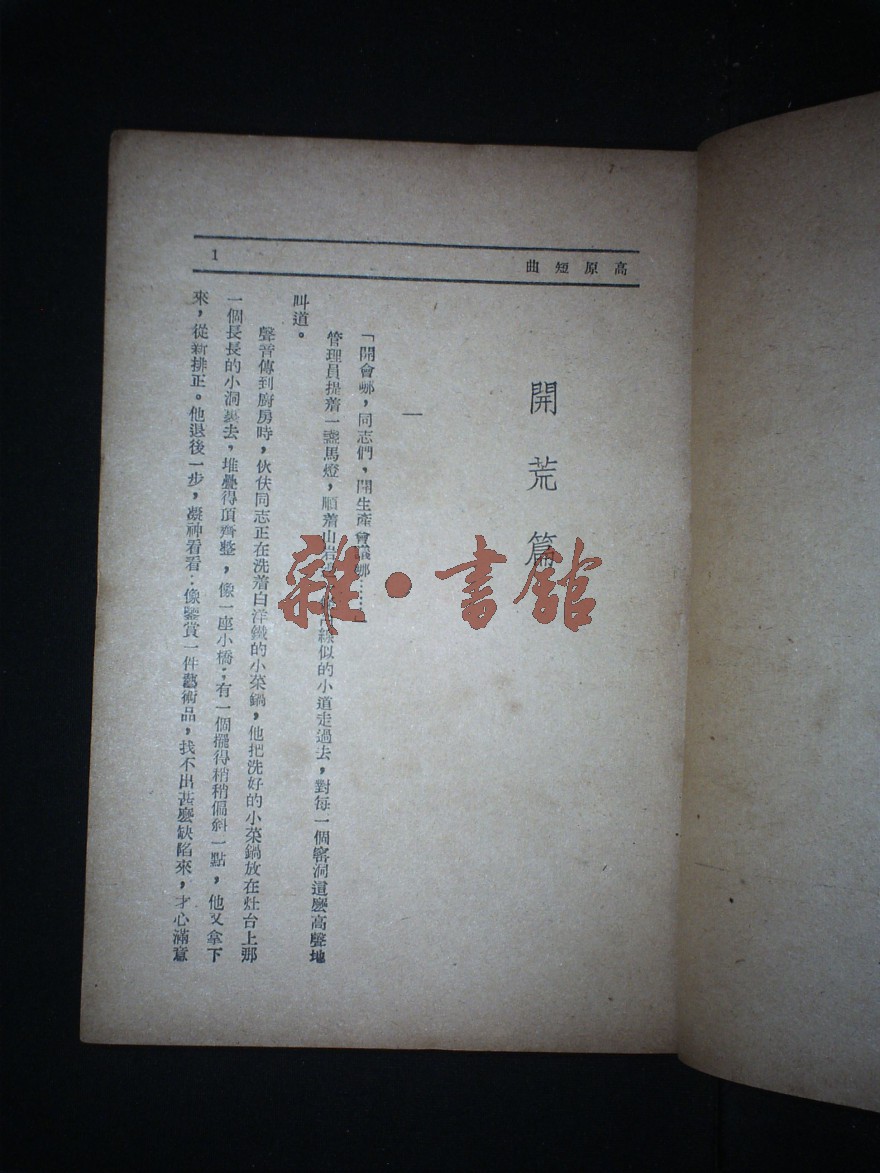 高原短曲
1
開荒篇
一
「開會哪，同志們，開生產會議哪……」
管理員提着一盞馬燈，順着山岩線似的小道走過去，對每一個窰洞這麼高聲地
叫道。
聲音傳到廚房時，伙伕同志正在洗着白洋鐵的小菜鍋，他把洗好的小菜鍋放在灶台上那
一個長長的小洞裏去，堆疊得頂齊整，像一座小橋；有一個擺得稍稍偏斜一點，他又拿下
來，從新排正。他退後一步，凝神看看：像鑒賞一件藝術品，找不出甚麼缺陷來，才心滿意
雜·書館